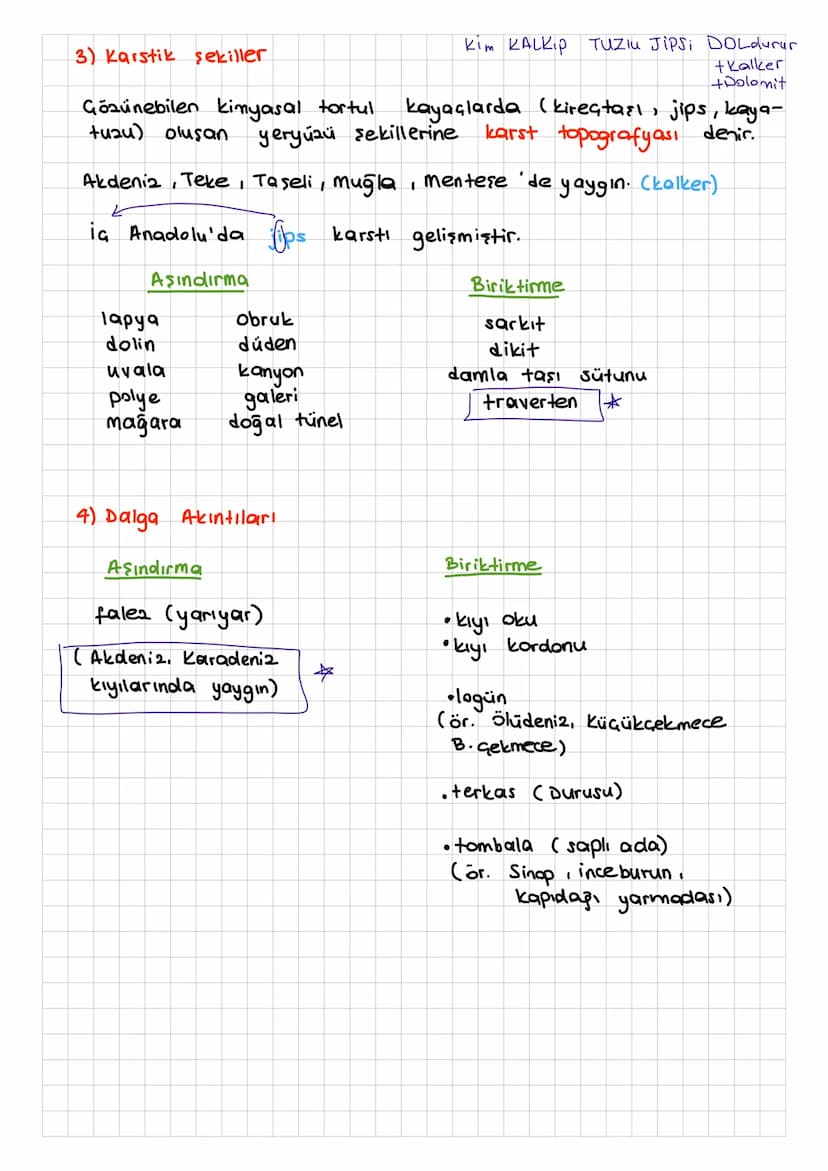 3) Karstik şekiller
Kim KALKıp TUZlu JİPSi DOLdurur
+Kalker
+Dolomit
Çözünebilen kimyasal tortul kayaçlarda (kireçtaşı, jips, kaya-
tuzu) oluşan yeryüzü şekillerine karst topografyası denir.
Akdeniz, Teke, Taşeli, muğla, menteşe 'de yaygın. (kalker)
iç Anadolu'da jips karstı gelişmiştir.
Aşındırma
lapya obruk
dolin düden
uvala kanyon
polye galeri
mağara doğal tünel
Biriktirme
sarkıt
dikit
damla taşı sütunu
traverten
4) Dalga Akıntıları
Aşındırma
falez (yarıyar)
(Akdeniz, Karadeniz
kıyılarında yaygın)
Biriktirme
• kıyı oku
• kıyı kordonu
• lagün
(ör. Ölüdeniz, küçükçekmece
B. çekmece)
• terkas (Durusu)
• tombala (saplı ada)
(ör. Sinop, inceburun,
kapıdağı yarmadası)